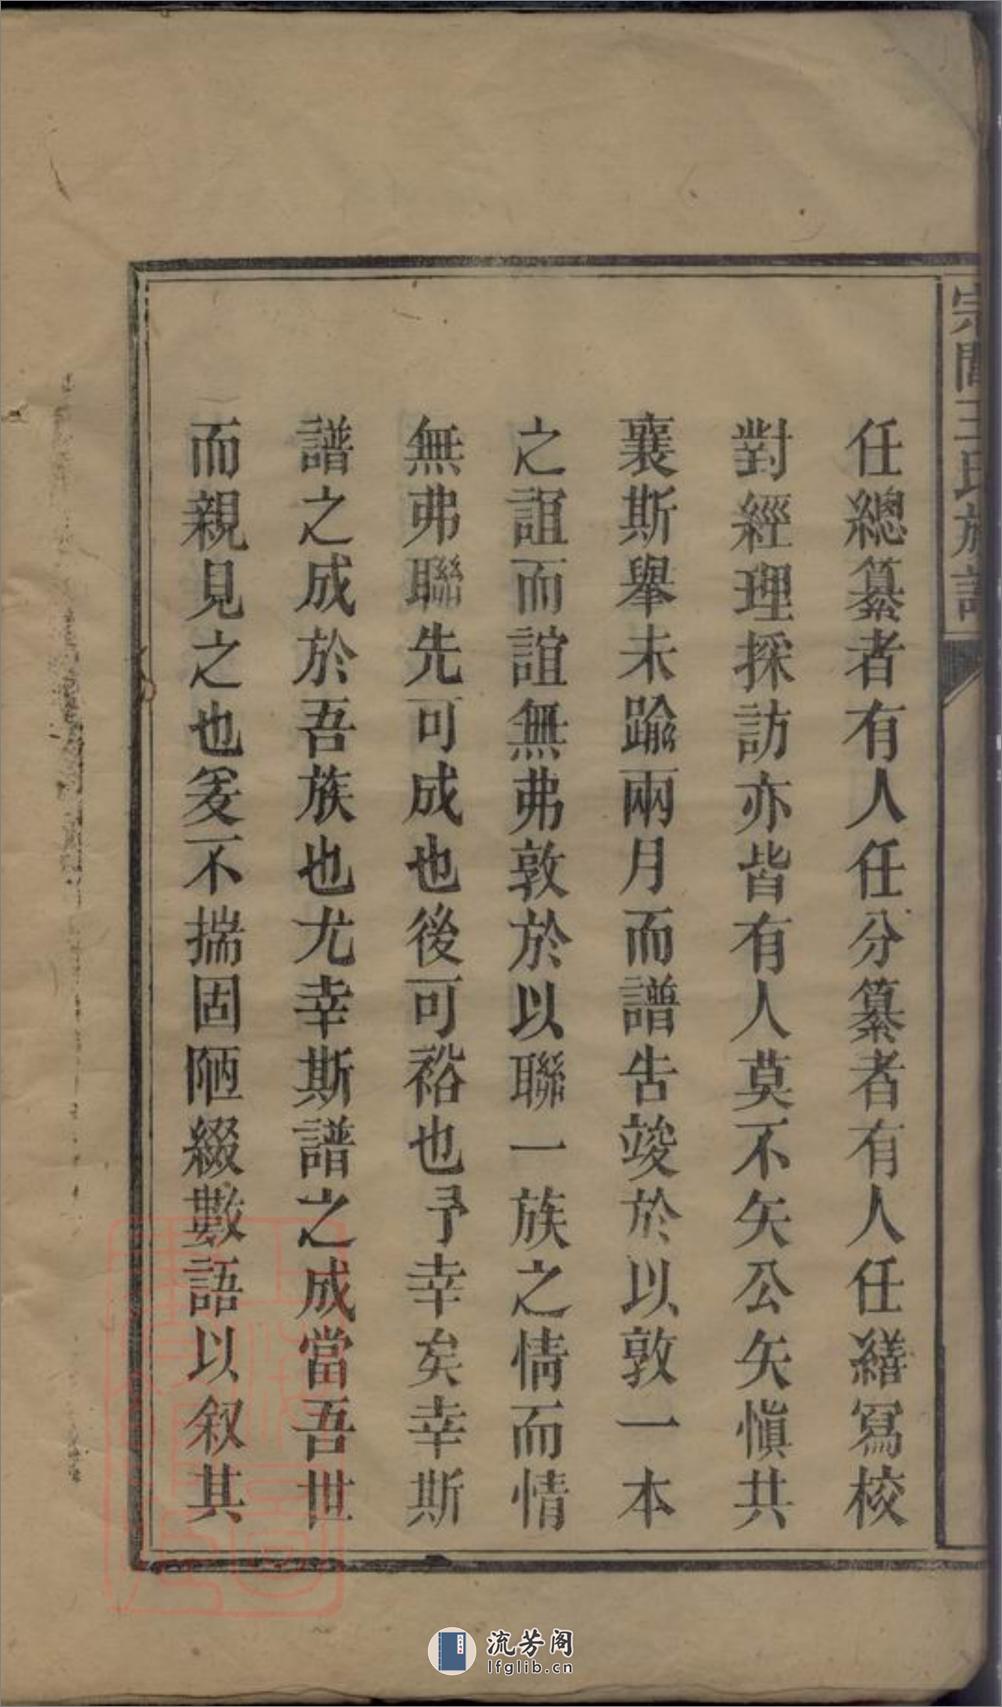 任總纂者有人任分纂者有人任繕寫校
對經理採訪亦皆有人莫不矢公矢愼共
襄斯舉未踰兩月而譜告竣於以敦一本
之誼而誼無弗敦於以聯一族之情而情
無弗聯先可成也後可裕也予幸矣幸斯
譜之成於吾族也尤幸斯譜之成當吾世
而親見之也爰不揣固陋綴數語以叙其
王氏族譜
流芳阁
lfglib.cn